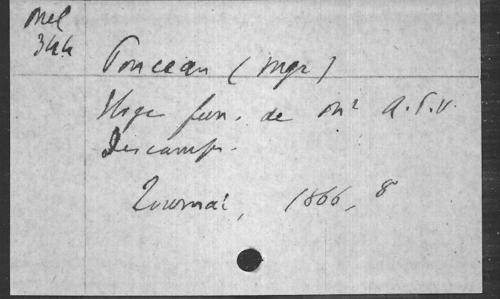 Mel
344
Ponceau (Mgr)
Eloge fun. de Mr A.P.V.
Descamps.
Tournai, 1866, 8°